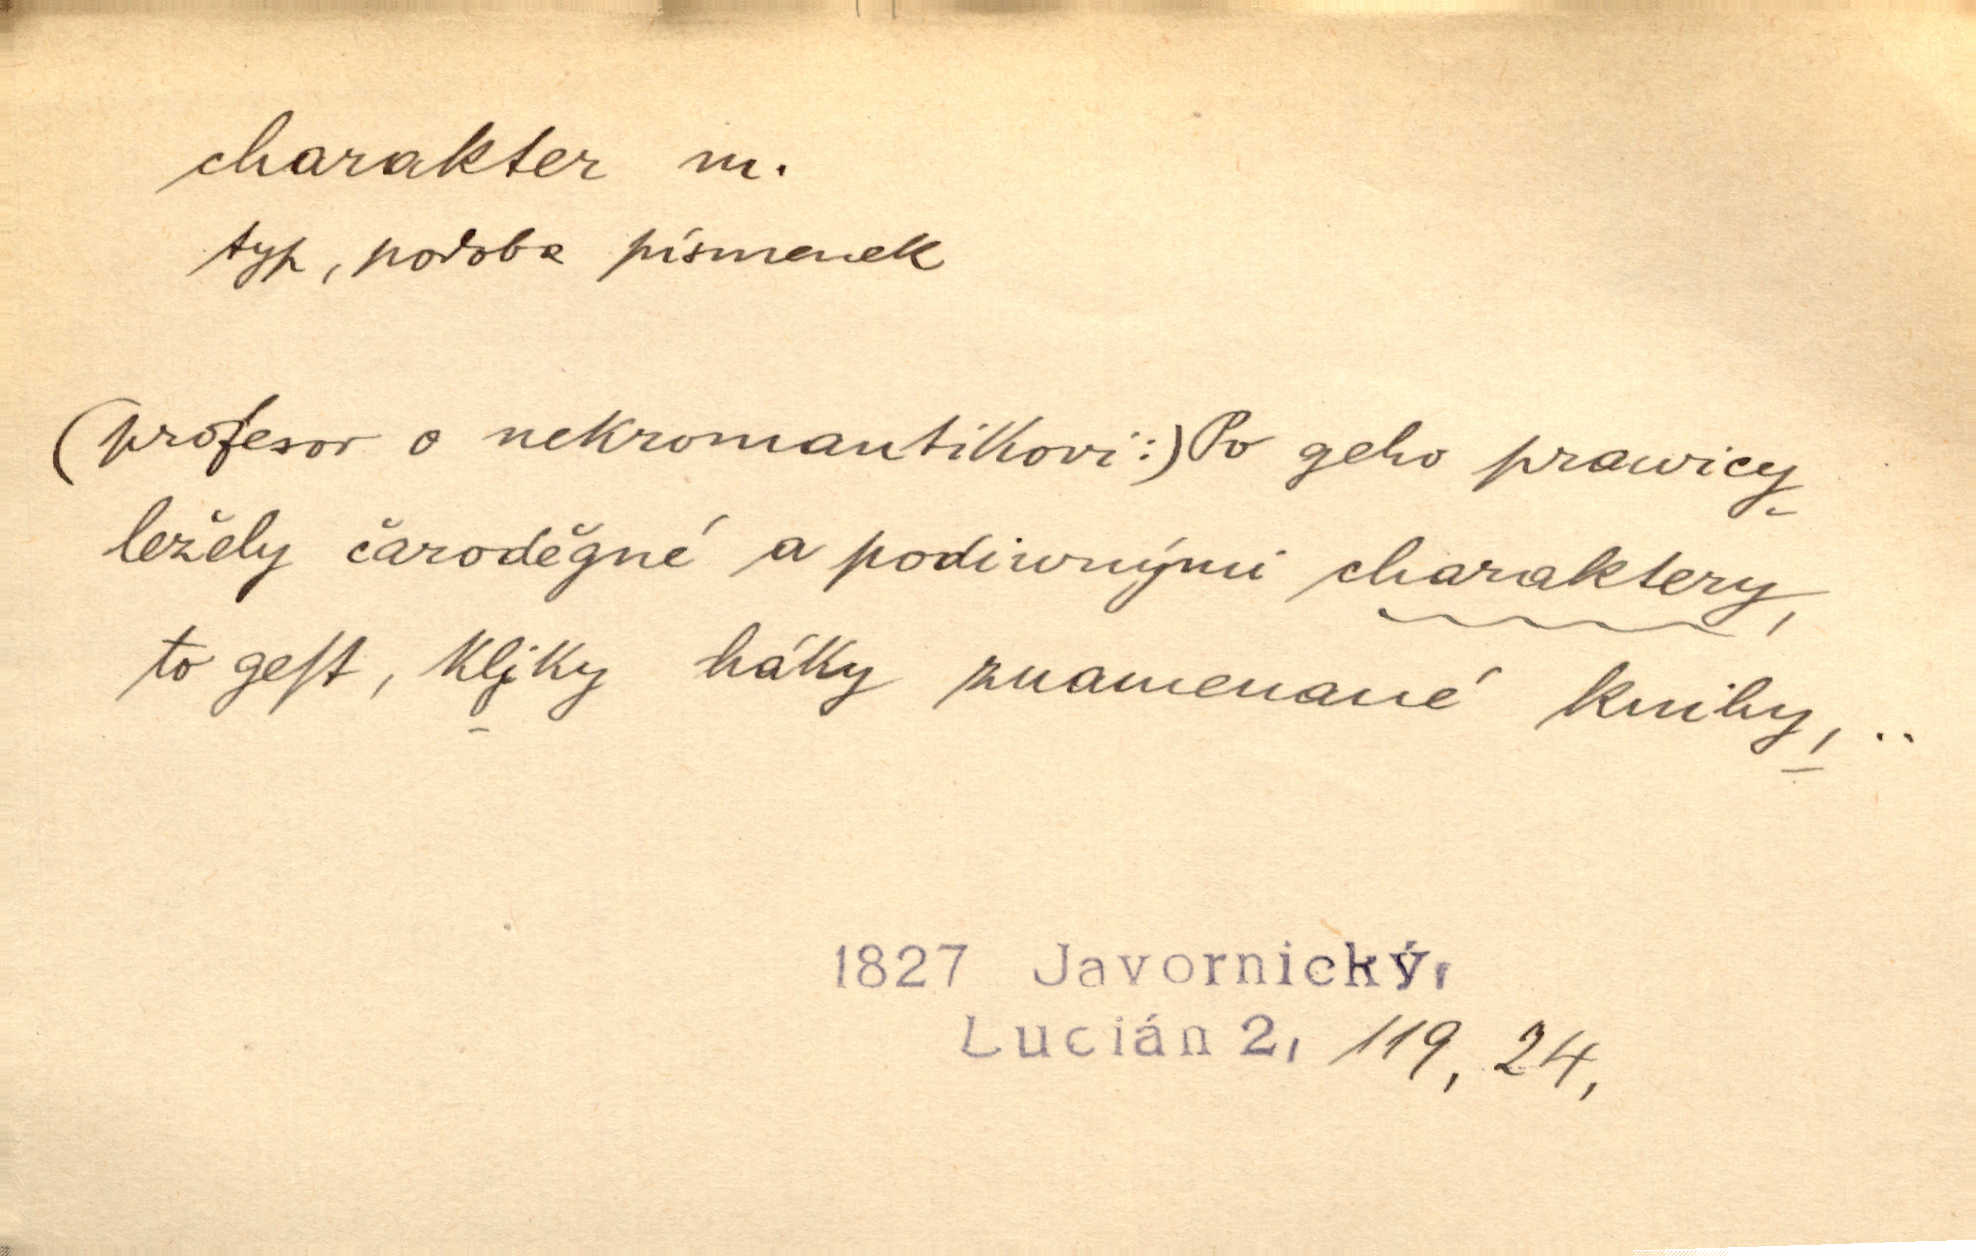 charakter m.
typ, podoba písmenek
(profesor o nekromantikovi:) Po geho prawicy
ležely čaroděgné a podiwnými charaktery,
to geſt, kljky háky znamenané knihy, ..
1827 Javornický,
Lucián 2, 119, 24,